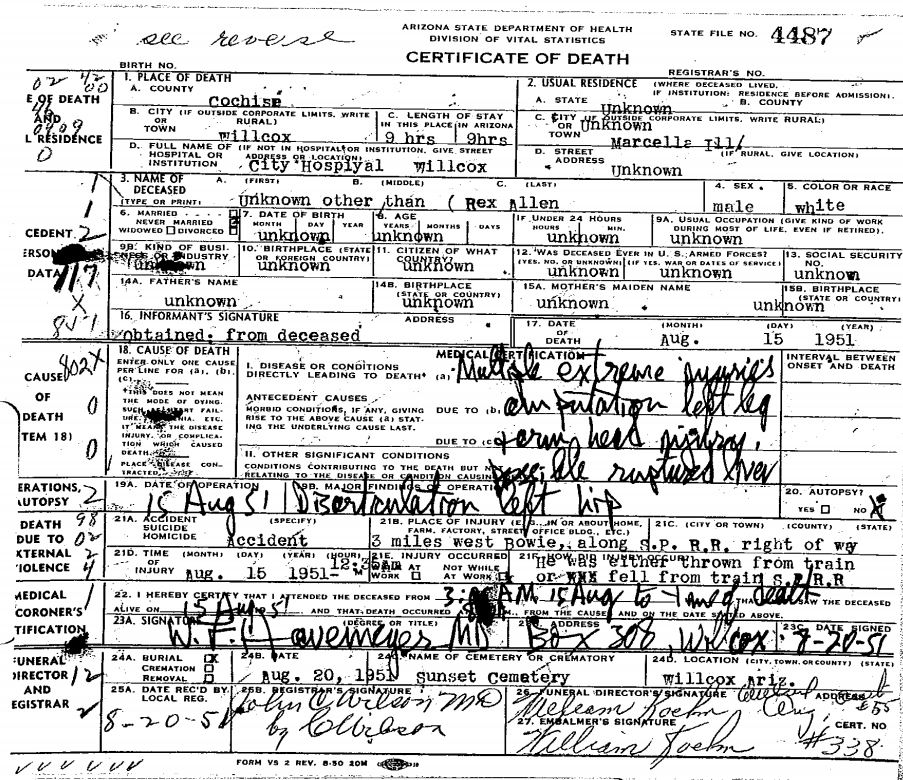 see reverse
ARIZONA STATE DEPARTMENT OF HEALTH
DIVISION OF VITAL STATISTICS
STATE FILE NO. 4487
CERTIFICATE OF DEATH
BIRTH NO.
REGISTRAR'S NO.
1. PLACE OF DEATH
A. COUNTY
Cochise
2. USUAL RESIDENCE (WHERE DECEASED LIVED. IF INSTITUTION: RESIDENCE BEFORE ADMISSION).
A. STATE Unknown B. COUNTY
B. CITY (IF OUTSIDE CORPORATE LIMITS, WRITE RURAL) OR TOWN
willcox
C. LENGTH OF STAY
IN THIS PLACE IN ARIZONA
9 hrs 9hrs
C. CITY (IF OUTSIDE CORPORATE LIMITS, WRITE RURAL) OR TOWN Unknown
Marcella Ill/
D. FULL NAME OF HOSPITAL OR INSTITUTION (IF NOT IN HOSPITAL OR INSTITUTION, GIVE STREET ADDRESS OR LOCATION)
City Hospiyal willcox
D. STREET ADDRESS (IF RURAL, GIVE LOCATION)
Unknown
3. NAME OF DECEASED (TYPE OR PRINT)
A. (FIRST) B. (MIDDLE) C. (LAST)
Unknown other than ( Rex Allen
4. SEX
male
5. COLOR OR RACE
white
6. MARRIED
NEVER MARRIED
WIDOWED DIVORCED
7. DATE OF BIRTH
MONTH DAY YEAR
unknown
8. AGE
YEARS MONTHS DAYS
unknown
IF UNDER 24 HOURS
HOURS MIN.
unknown
9A. USUAL OCCUPATION (GIVE KIND OF WORK DURING MOST OF LIFE, EVEN IF RETIRED).
unknown
9B. KIND OF BUSINESS OR INDUSTRY
unknown
10. BIRTHPLACE (STATE OR FOREIGN COUNTRY)
unknown
11. CITIZEN OF WHAT COUNTRY?
unknown
12. WAS DECEASED EVER IN U. S. ARMED FORCES?
(YES, NO, OR UNKNOWN) (IF YES, WAR OR DATES OF SERVICE)
unknown unknown
13. SOCIAL SECURITY NO.
unknown
14A. FATHER'S NAME
unknown
14B. BIRTHPLACE (STATE OR COUNTRY)
unknown
15A. MOTHER'S MAIDEN NAME
unknown
15B. BIRTHPLACE (STATE OR COUNTRY)
unknown
16. INFORMANT'S SIGNATURE ADDRESS
obtained from deceased
17. DATE OF DEATH
(MONTH) (DAY) (YEAR)
Aug. 15 1951
18. CAUSE OF DEATH
ENTER ONLY ONE CAUSE PER LINE FOR (a), (b), (c).
MEDICAL CERTIFICATION
INTERVAL BETWEEN ONSET AND DEATH
I. DISEASE OR CONDITIONS DIRECTLY LEADING TO DEATH* (a) Multiple extreme injuries
ANTECEDENT CAUSES
MORBID CONDITIONS, IF ANY, GIVING RISE TO THE ABOVE CAUSE (a) STATING THE UNDERLYING CAUSE LAST.
DUE TO (b) amputation left leg
DUE TO (c) + arm, head injury,
II. OTHER SIGNIFICANT CONDITIONS
CONDITIONS CONTRIBUTING TO THE DEATH BUT NOT RELATING TO THE DISEASE OR CONDITION CAUSING
possible ruptured liver
19A. DATE OF OPERATION
15 Aug 51
19B. MAJOR FINDINGS OF OPERATION
Disarticulation left hip
20. AUTOPSY?
YES NO X
21A. ACCIDENT SUICIDE HOMICIDE (SPECIFY)
Accident
21B. PLACE OF INJURY (E. IN OR ABOUT HOME, FARM, FACTORY, STREET, OFFICE BLDG., ETC.)
21C. (CITY OR TOWN) (COUNTY) (STATE)
3 miles west Bowie, along S.P. R.R. right of way
21D. TIME OF INJURY (MONTH) (DAY) (YEAR) (HOUR)
Aug. 15 1951-
21E. INJURY OCCURRED
WORK NOT WHILE AT WORK
21F. HOW DID INJURY OCCUR?
He was either thrown from train
or fell from train S.P.R.R
22. I HEREBY CERTIFY THAT I ATTENDED THE DECEASED FROM 3: A.M. 15 Aug to
ALIVE ON 15 Aug 51 AND THAT DEATH OCCURRED FROM THE CAUSE AND ON THE DATE STATED ABOVE.
23A. SIGNATURE (DEGREE OR TITLE)
W. F. Havemeyer MD
ADDRESS
Box 308, Willcox
23C. DATE SIGNED
8-20-51
24A. BURIAL X
CREMATION
REMOVAL
24B. DATE
Aug. 20, 1951
24C. NAME OF CEMETERY OR CREMATORY
Sunset Cemetery
24D. LOCATION (CITY, TOWN, OR COUNTY) (STATE)
willcox Ariz.
25A. DATE REC'D BY LOCAL REG.
8-20-51
25B. REGISTRAR'S SIGNATURE
John C Wilson MD
by C Wilson
26. FUNERAL DIRECTOR'S SIGNATURE ADDRESS
William Koehn
27. EMBALMER'S SIGNATURE CERT. NO
William Koehn #338
FORM VS 2 REV. 8-50 20M